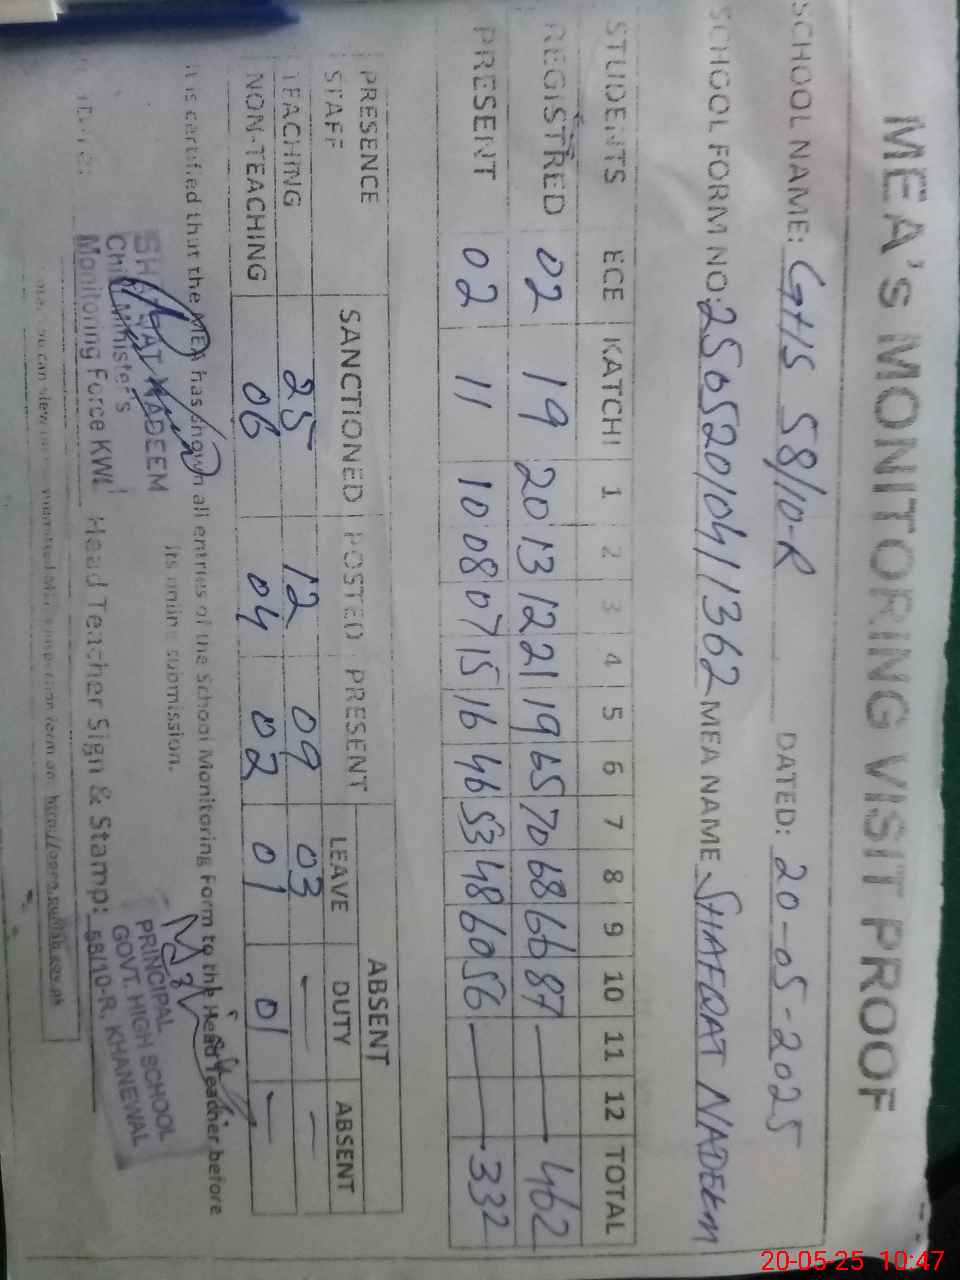 MEA's MONITORING VISIT PROOF
SCHOOL NAME: GHS 58/10-R DATED: 20-05-2025
SCHOOL FORM NO: 2505201041 1362 MEA NAME SHAFQAT NADEEM
STUDENTS ECE KATCHI 1 2 3 4 5 6 7 8 9 10 11 12 TOTAL
REGISTRED 02 19 20 13 12 21 19 65 70 68 66 87 — 462
PRESENT 02 11 10 08 07 15 16 46 53 48 60 56 — 332
PRESENCE ABSENT
STAFF SANCTIONED POSTED PRESENT LEAVE DUTY ABSENT
TEACHING 25 12 09 03 — —
NON-TEACHING 06 04 02 01 01 —
It is certified that the MEA has shown all entries of the School Monitoring Form to the Head Teacher before
its online submission.
NADEEM
Chief Minister's
Monitoring Force KWL
Head Teacher Sign & Stamp:
PRINCIPAL
GOVT. HIGH SCHOOL
58/10-R, KHANEWAL
you can view